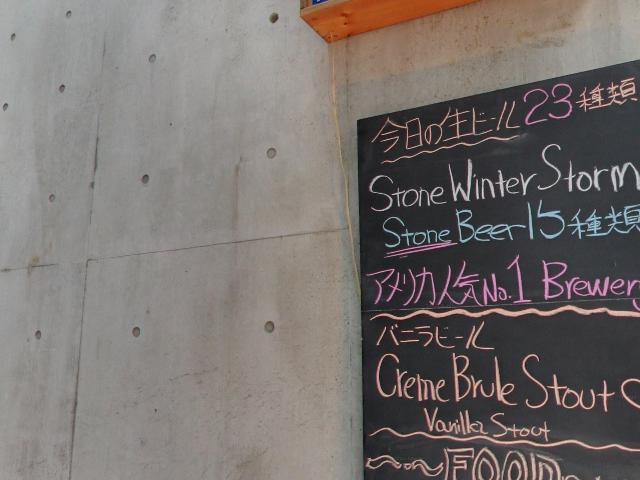 今日の生ビール 23種類
Stone Winter Storm
Stone Beer 15種類
アメリカ人気No.1 Brewery
バニラビール
Creme Brule Stout
Vanilla Stout
FOOD